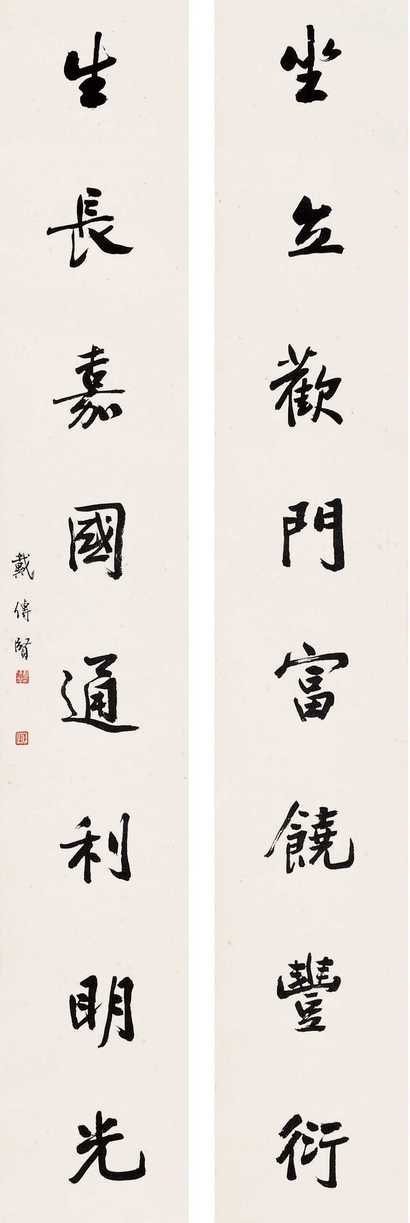 坐立歡門富饒豐衍
生長嘉國通利明光
戴傳賢